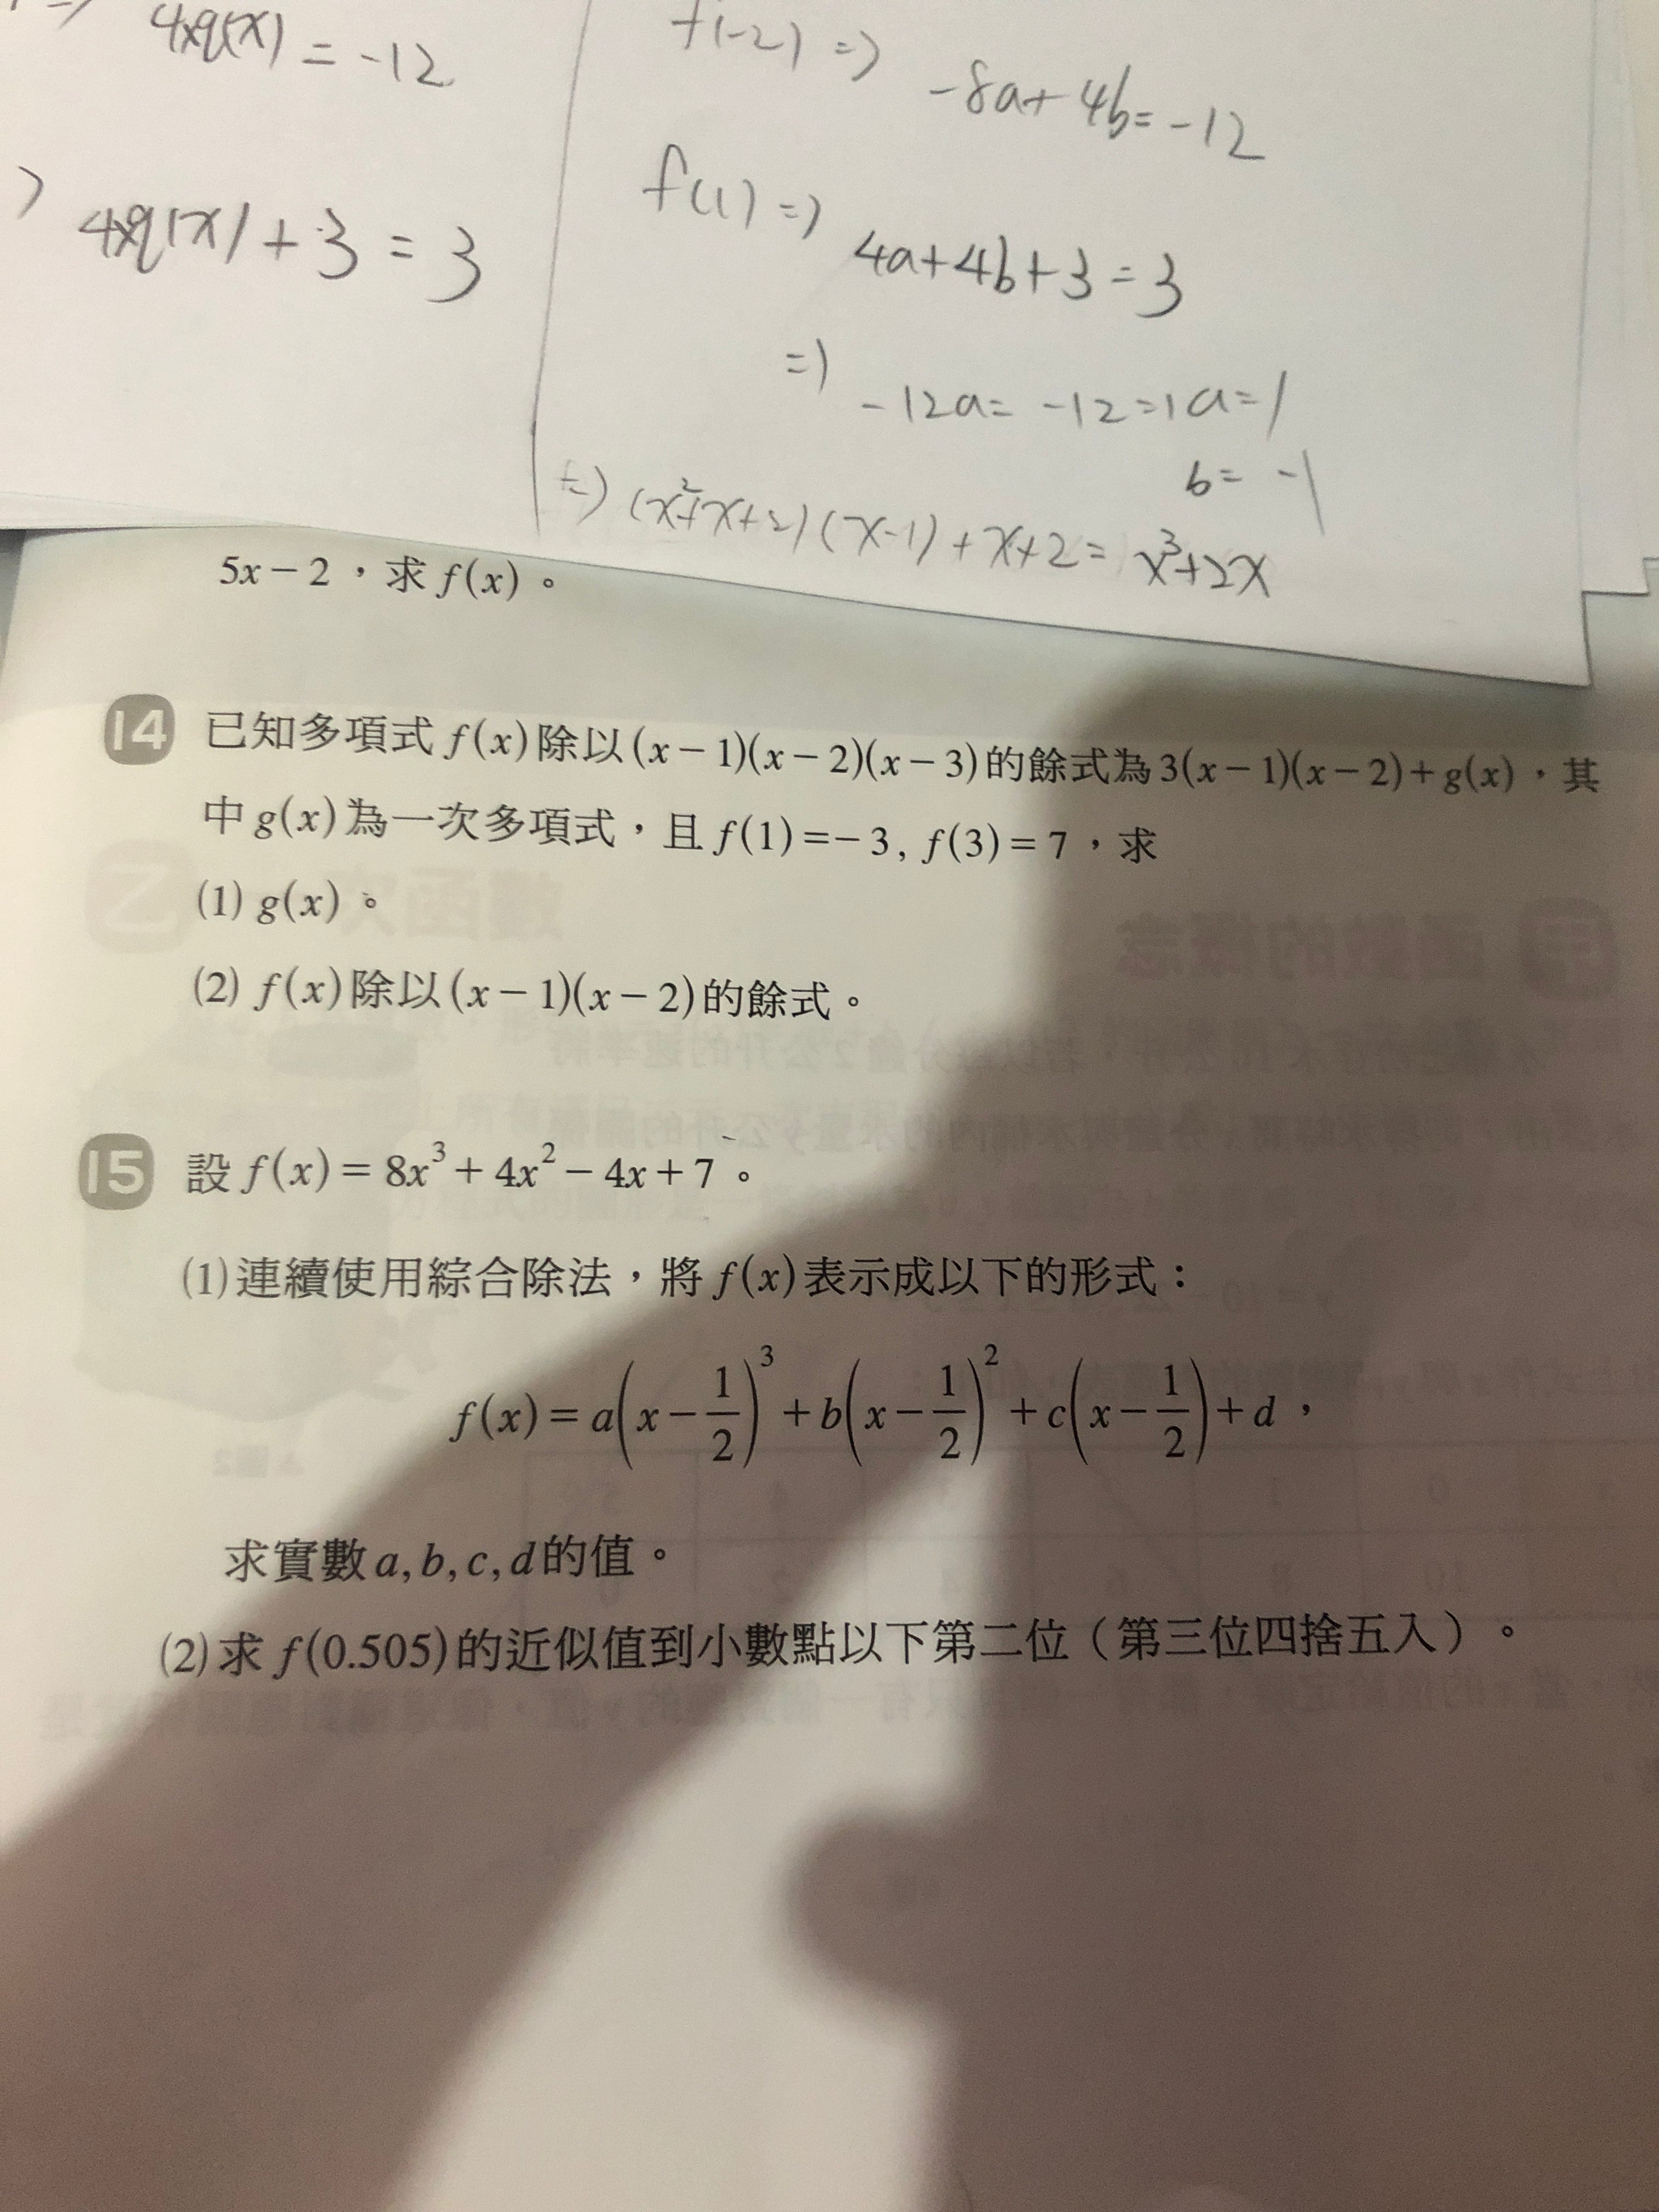 4xq(x) = -12
4xq(x) + 3 = 3
f(-2) =>
-8a+4b=-12
f(1) =>
4a+4b+3=3
=>
-12a=-12 => a=1
b=-1
=> (x²+x+2)(x-1)+x+2= x³+2x
5x－2，求 f(x)。
14 已知多項式 f(x) 除以 (x－1)(x－2)(x－3) 的餘式為 3(x－1)(x－2)＋g(x)，其
中 g(x) 為一次多項式，且 f(1)=－3, f(3)=7，求
(1) g(x)。
(2) f(x) 除以 (x－1)(x－2) 的餘式。
15 設 f(x)＝8x³＋4x²－4x＋7。
(1) 連續使用綜合除法，將 f(x) 表示成以下的形式：
f(x)＝a(x－1/2)³＋b(x－1/2)²＋c(x－1/2)＋d，
求實數 a, b, c, d 的值。
(2) 求 f(0.505) 的近似值到小數點以下第二位（第三位四捨五入）。